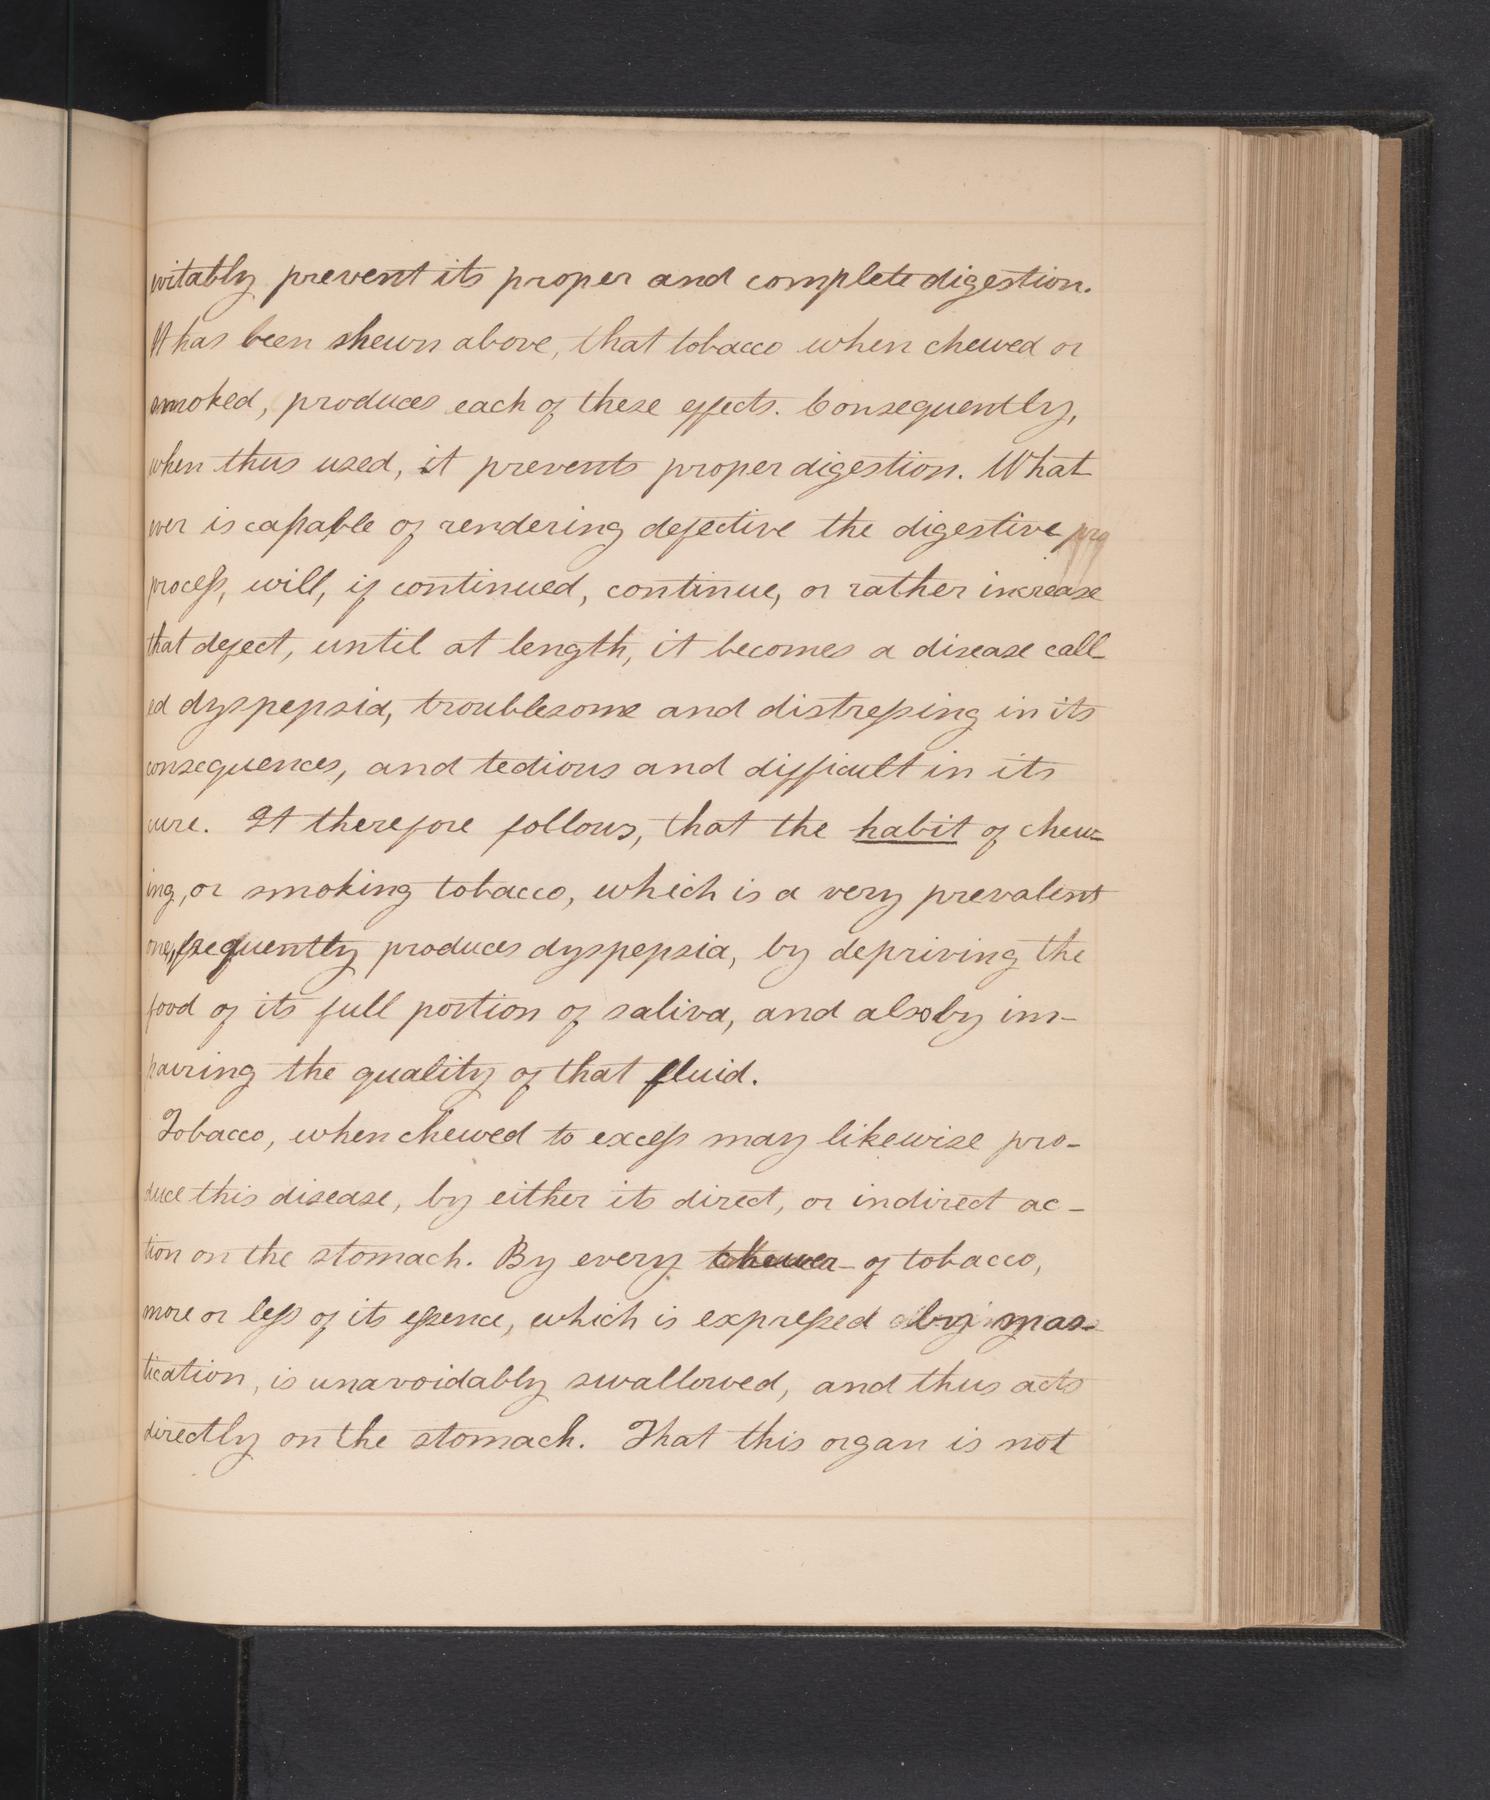 evitably prevent its proper and complete digestion.
It has been shewn above, that tobacco when chewed or
smoked, produces each of these effects. Consequently,
when thus used, it prevents proper digestion. What
ever is capable of rendering defective the digestive pro
process, will, if continued, continue, or rather increase
that defect, until at length, it becomes a disease call
ed dyspepsia, troublesome and distressing in its
consequences, and tedious and difficult in its
cure. It therefore follows, that the habit of chew=
ing, or smoking tobacco, which is a very prevalent
one, frequently produces dyspepsia, by depriving the
food of its full portion of saliva, and also by im-
pairing the quality of that fluid.
Tobacco, when chewed to excess may likewise pro-
duce this disease, by either its direct, or indirect ac-
tion on the stomach. By every chewer of tobacco,
more or less of its essence, which is expressed by mas-
tication, is unavoidably swallowed, and thus acts
directly on the stomach. That this organ is not